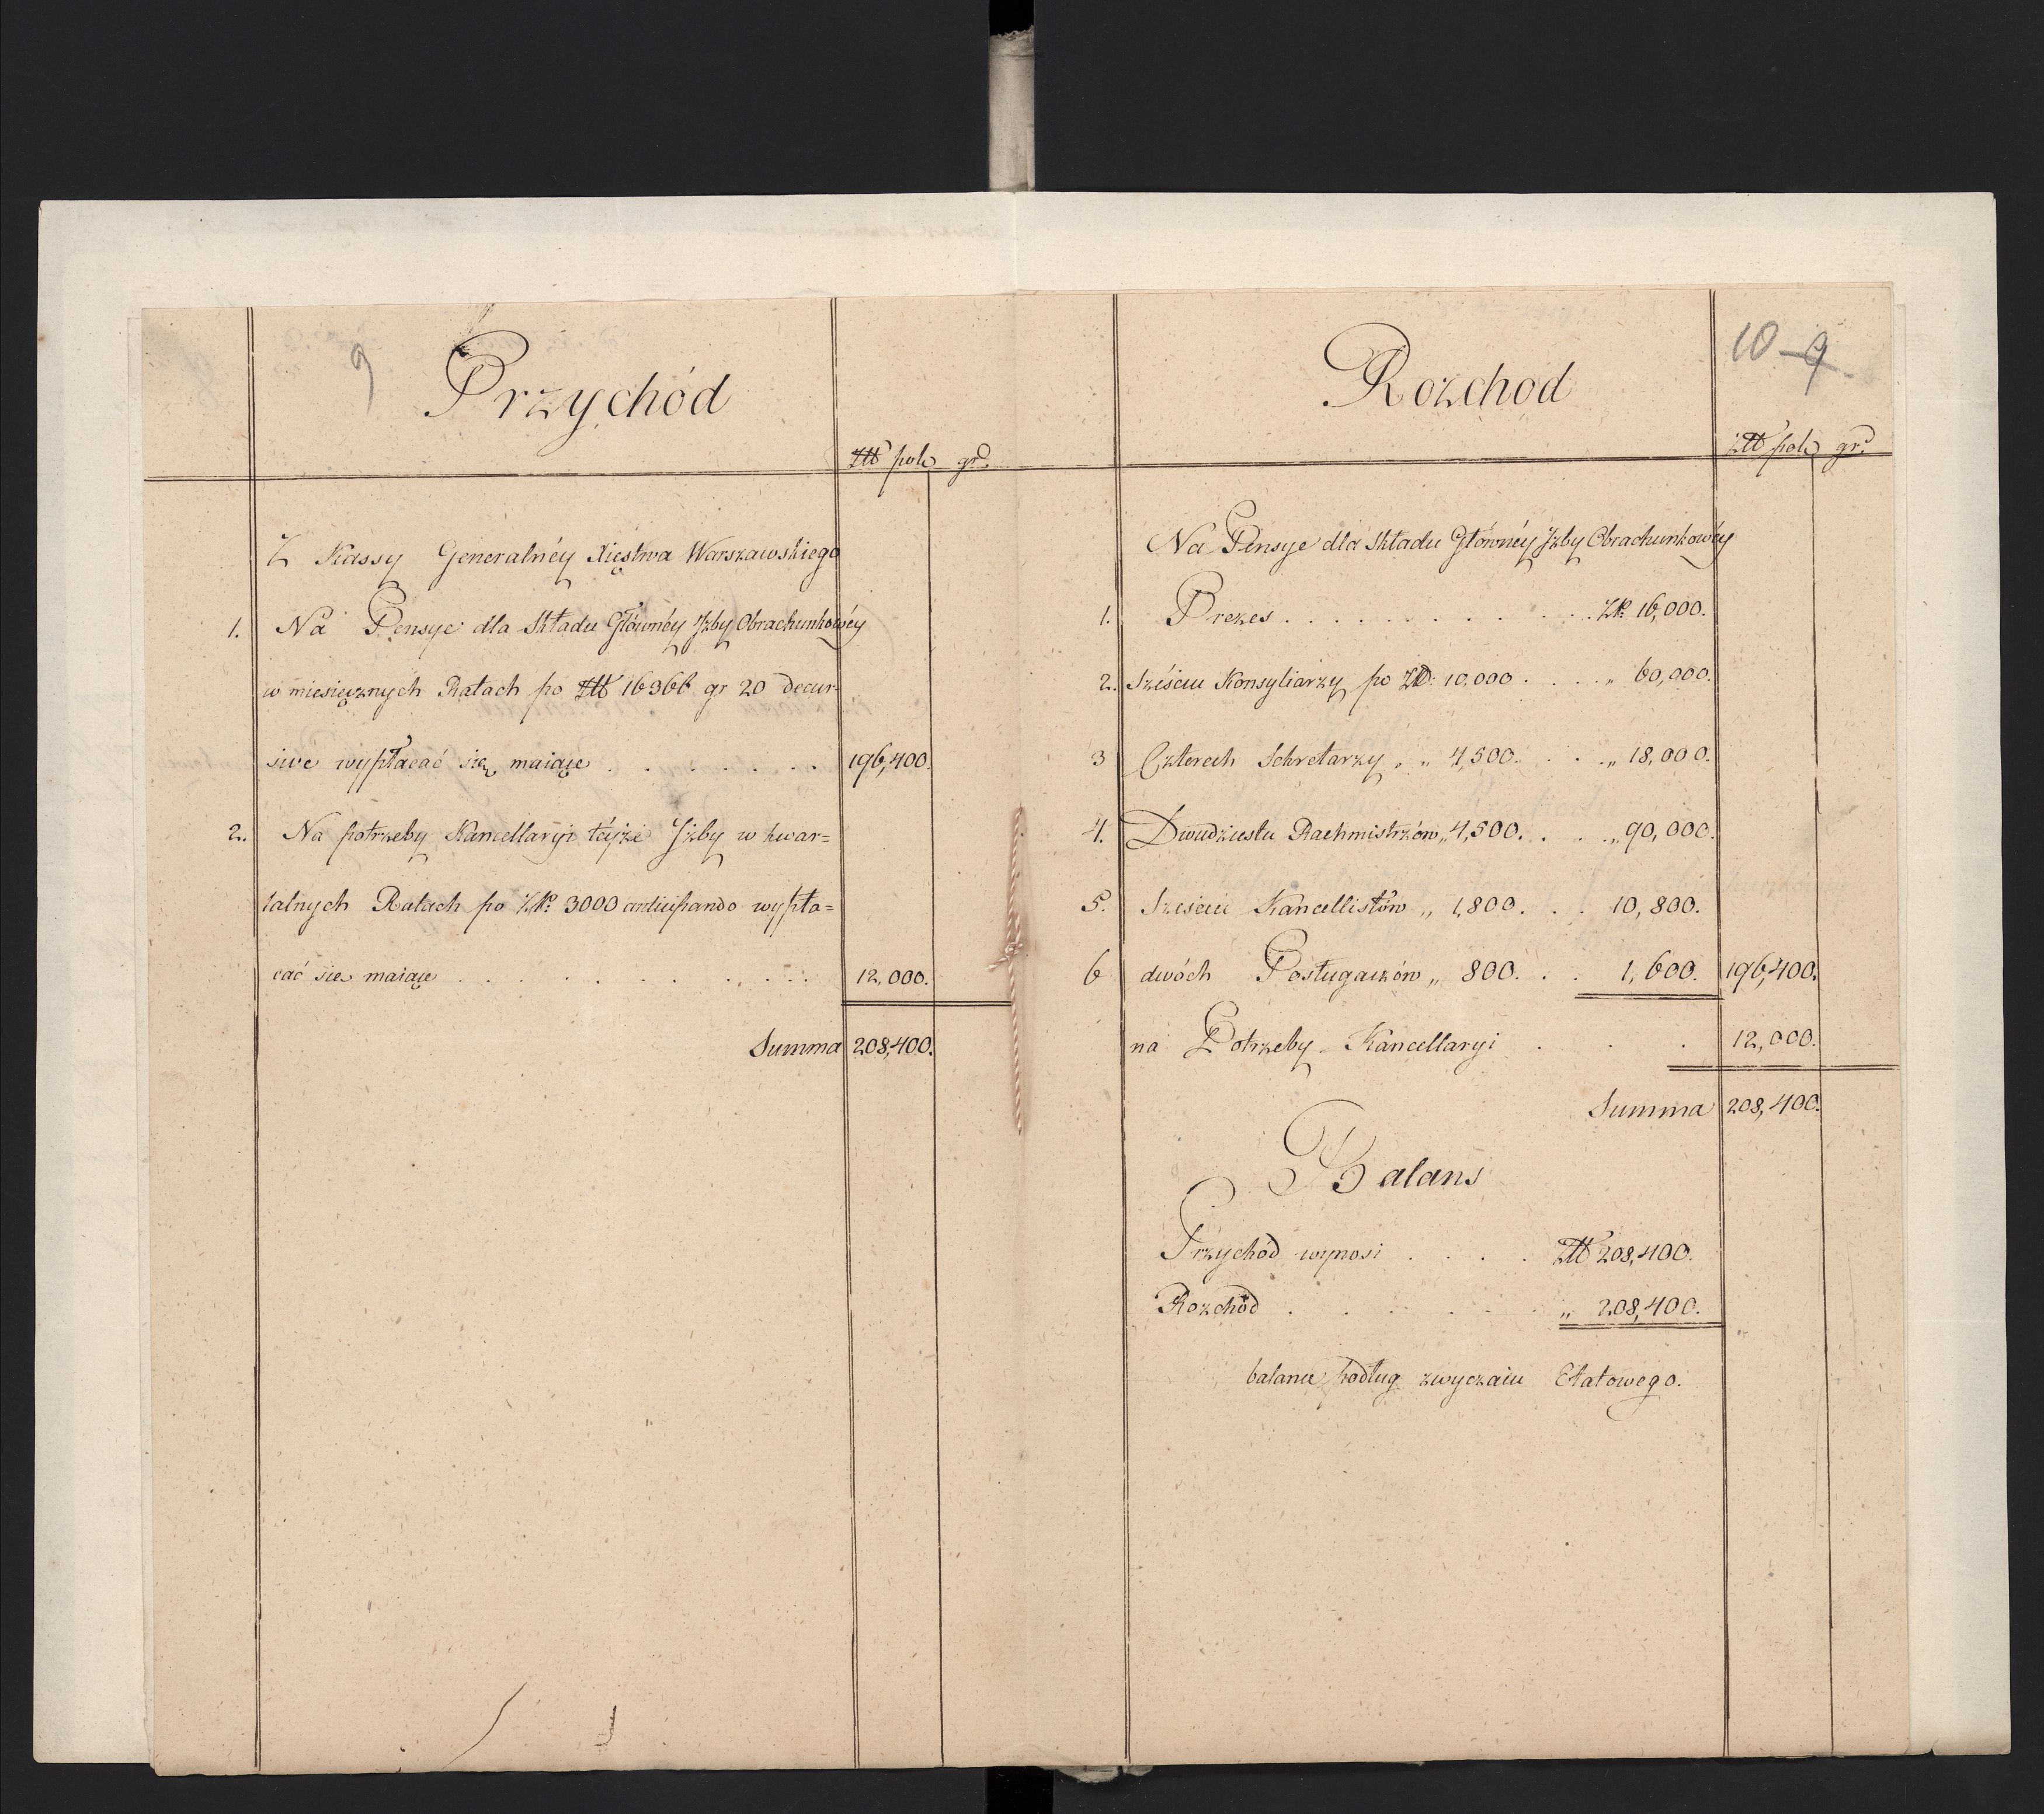 9
Przychód
Złł pols gr.
Z Kassy Generalnéy Xięstwa Warszawskiego
1. Na Pensye dla Składu Główney Jzby Obrachunkowéy
w miesięcznych Ratach po Złł 16366 gr 20 decur-
sive wypłacać się maiące . . . . . . . 196,400.
2. Na potrzeby Kancellaryi téyże Jzby w kwar=
talnych Ratach po Złp. 3000 anticipando wypła=
cać się maiące . . . . . . . . . . 12,000.
Summa 208,400.
10 9
Rozchod
Złł pols gr.
Na Pensye dla Składu Główney Jzby Obrachunkowéy
1. Prezes . . . . . . . . . . . Złp. 16,000.
2. Sześciu Konsyliarzy po Złł: 10,000 . . . . „ 60,000.
3 Czterech Sekretarzy „ „ 4,500. . . . „ 18,000.
4. Dwudziestu Rachmistrzów „ 4,500. . . . „ 90,000.
5. Sześciu Kancellistów „ 1,800. . . 10,800.
6 dwóch Posługaczów „ 800. . . 1,600. 196,400.
na Potrzeby Kancellaryi . . . 12,000.
Summa 208,400.
Balans
Przychód wynosi . . . . Złł 208,400.
Rozchód . . . . . . „ 208,400.
balance podług zwyczaiu Etatowego.